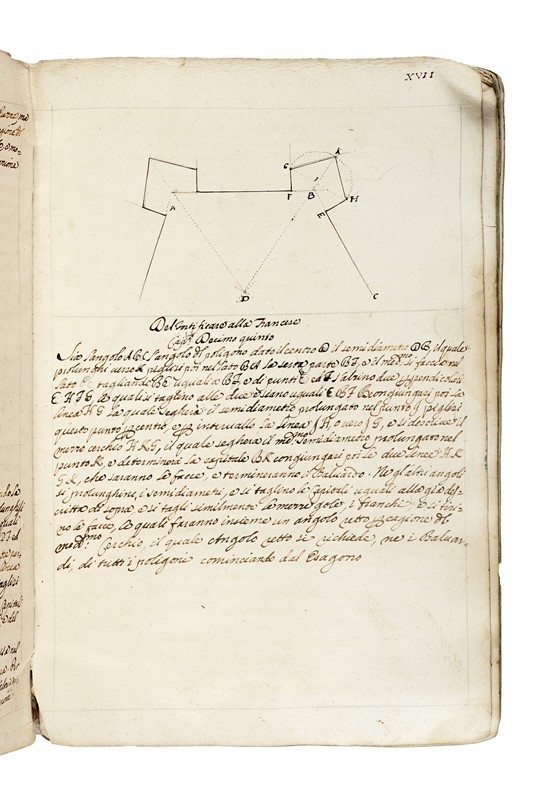 XVII
G
K
I
A
F
B
H
M
D
C
Del fortificare alla Francese
Cap.º Decimo quinto
Sia l'angolo ABC l'angolo del poligono dato il centro D il semidiametro DB il quale
prolunghisi verso K pigliasi poi nel lato BA la sesta parte BF, e il med.mo si fa ce nel
lato BC tagliando BE uguale a BF, e da punti E ed F s'alzino due perpendicolari
EH FG le quali si taglino alle due esiano uguali EB BF congiungasi poi la
linea HG la quale seghera il semidiametro prolungato nel punto I piglisi
questo punto per centro, e per intervallo la linea IH overo IG, e si descriva il
mezzo cerchio HKG, il quale seghera il med.mo semidiametro prolungato nel
punto K, e determinerà la capitale BK congiungasi poi le due linee HK
GK, che saranno le facce, e termineranno il Baluardo. Negl'altri angoli
si prolunghino i semidiametri, e si taglino le Capitali uguali alla già des-
critta di sopra, e si tagli similmente le mezze gole, i fianchi, e si tiri-
no le facce, le quali faranno insieme un angolo retto per cagione del
med.mo Cerchio, il quale Angolo retto si richiede, ne i Baluar-
di, di tutti i poligoni cominciando dal Esagono